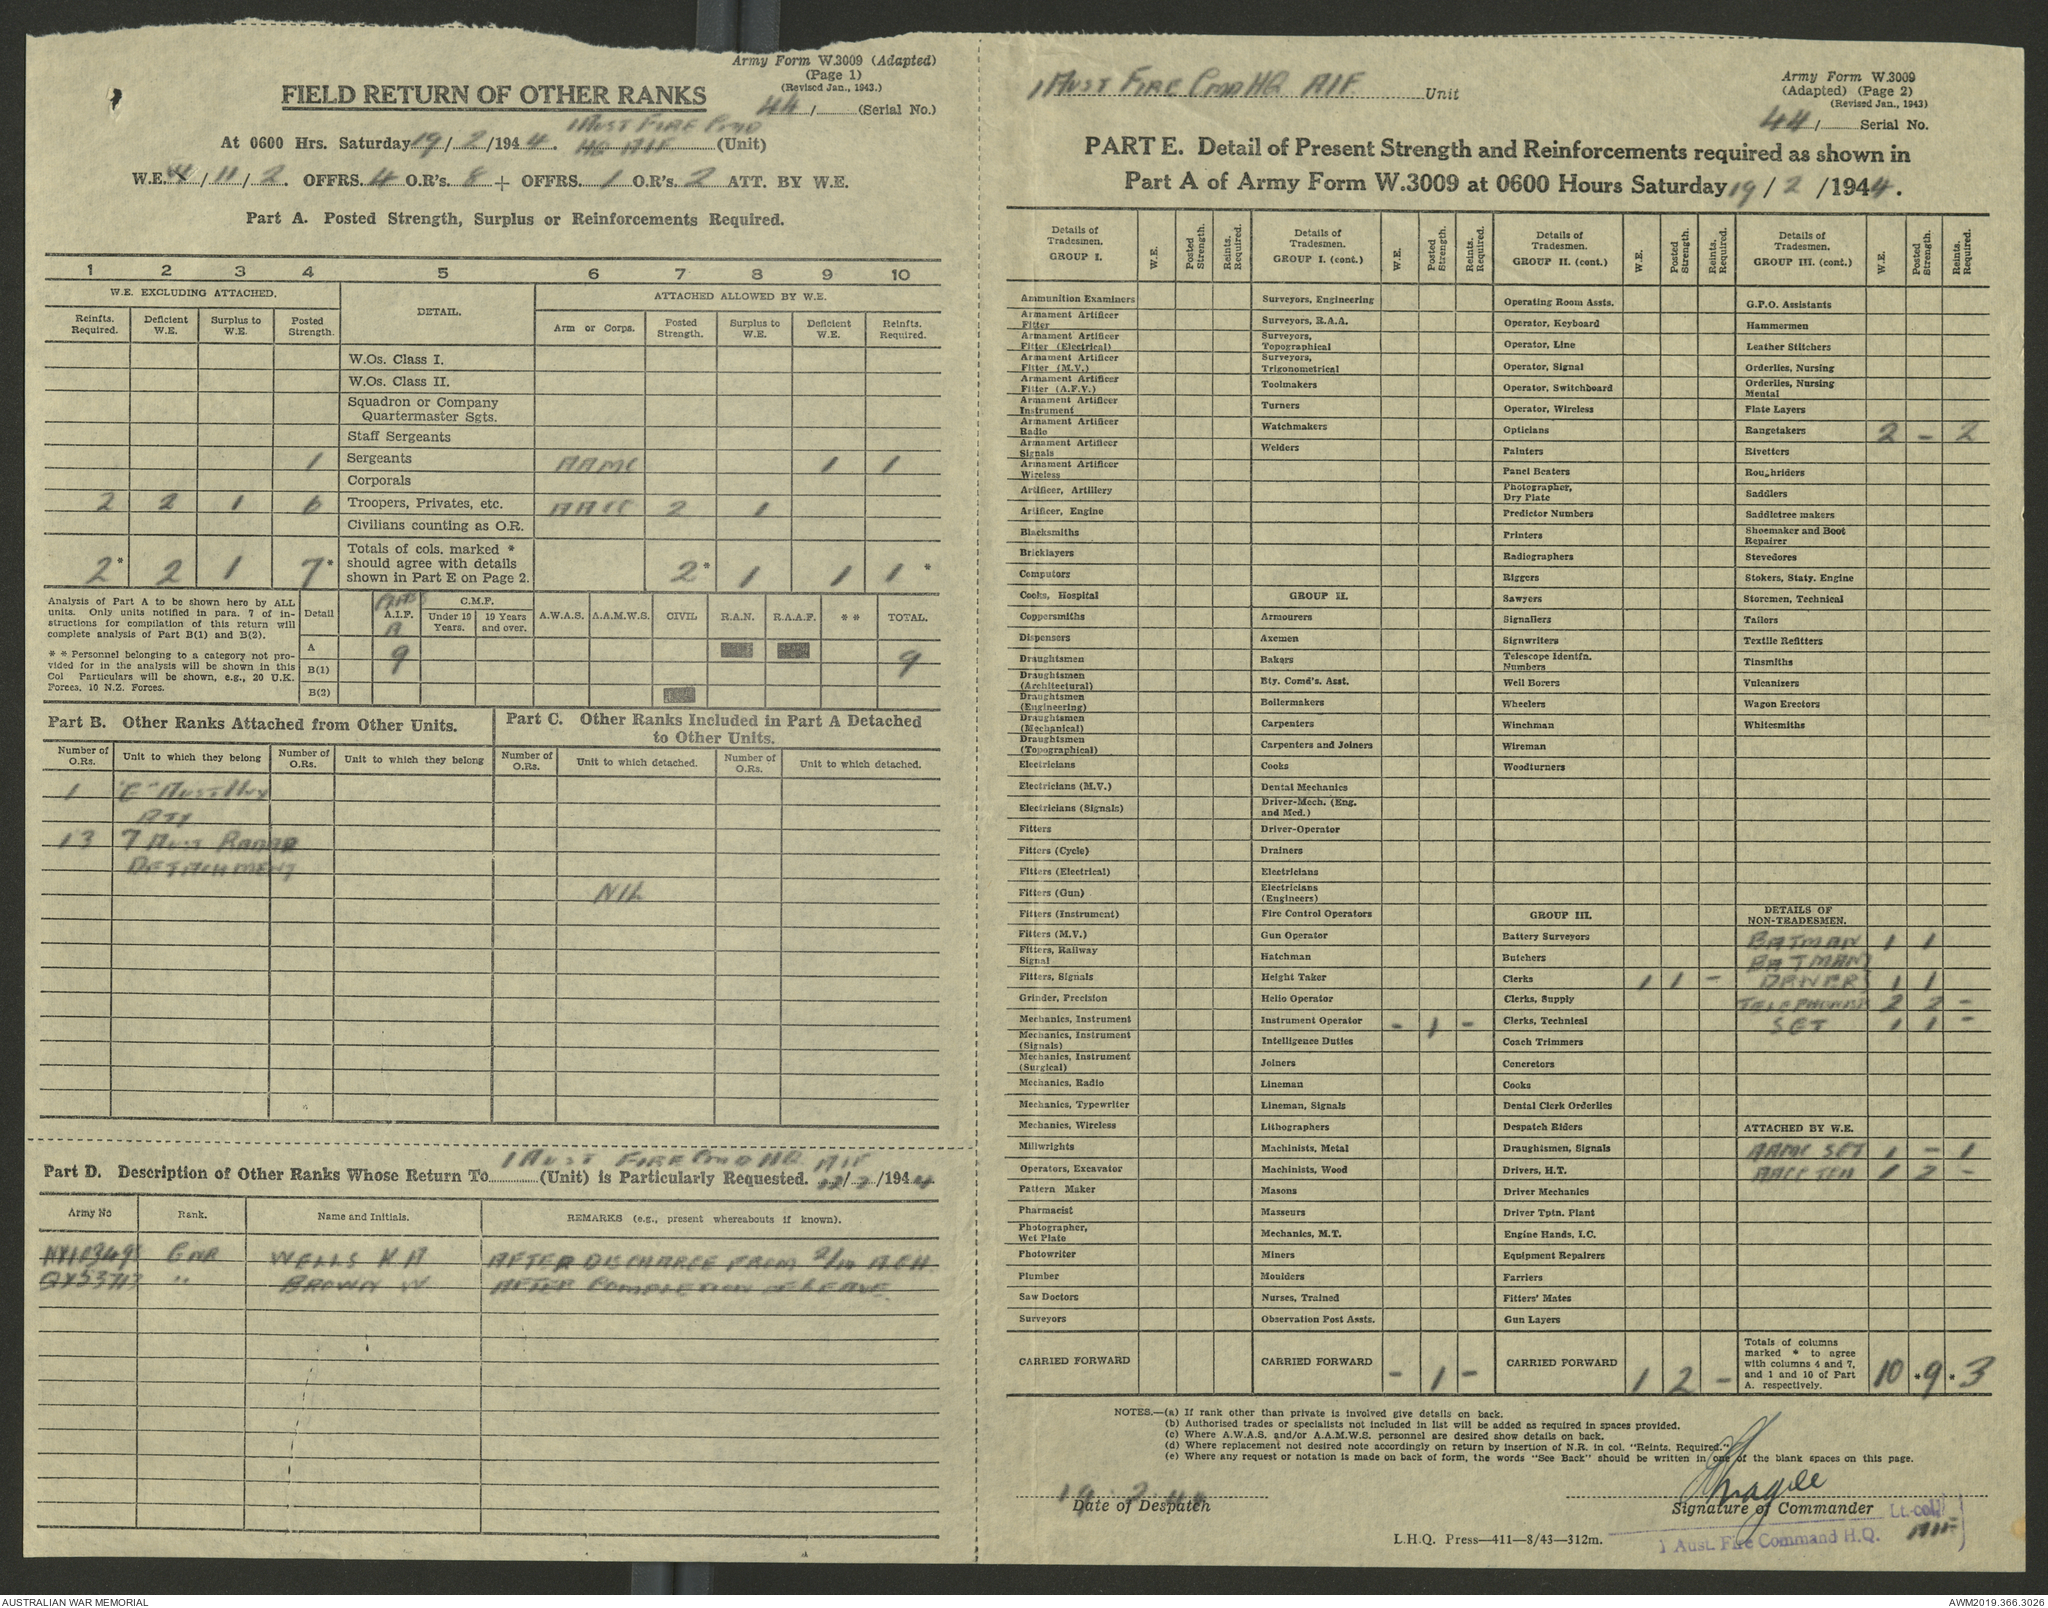 Army Form W.3009 (Adapted)
(Page 1)
(Revised Jan., 1943.)
FIELD RETURN OF OTHER RANKS
44/ (Serial No.)
At 0600 Hrs. Saturday 19/2/1944. 1 AUST FIRE CMD HQ AIF (Unit)
W.E. 4/11/2. OFFRS. 4 O.R's. 8 + OFFRS. 1 O.R's. 2 ATT. BY W.E.
Part A. Posted Strength, Surplus or Reinforcements Required.
1 2 3 4 5 6 7 8 9 10
W.E. EXCLUDING ATTACHED. DETAIL. ATTACHED ALLOWED BY W.E.
Reinfts. Required. Deficient W.E. Surplus to W.E. Posted Strength. Arm or Corps. Posted Strength. Surplus to W.E. Deficient W.E. Reinfts. Required.
W.Os. Class I.
W.Os. Class II.
Squadron or Company
Quartermaster Sgts.
Staff Sergeants
1 Sergeants AAMC 1 1
Corporals
2 2 1 6 Troopers, Privates, etc. AACC 2 1
Civilians counting as O.R.
2* 2 1 7* Totals of cols. marked * should agree with details shown in Part E on Page 2. 2* 1 1 1*
Analysis of Part A to be shown here by ALL
units. Only units notified in para. 7 of in-
structions for compilation of this return will
complete analysis of Part B(1) and B(2).
* * Personnel belonging to a category not pro-
vided for in the analysis will be shown in this
Col Particulars will be shown, e.g., 20 U.K.
Forces, 10 N.Z. Forces.
Detail A.I.F. C.M.F. Under 19 Years. 19 Years and over. A.W.A.S. A.A.M.W.S. CIVIL R.A.N. R.A.A.F. * * TOTAL.
A 9 9
B(1)
B(2)
Part B. Other Ranks Attached from Other Units.
Number of O.Rs. Unit to which they belong Number of O.Rs. Unit to which they belong
1 "E" Aust Hvy
Bty
13 7 AUST RADAR
DETACHMENT
Part C. Other Ranks Included in Part A Detached
to Other Units.
Number of O.Rs. Unit to which detached. Number of O.Rs. Unit to which detached.
NIL
Part D. Description of Other Ranks Whose Return To 1 AUST FIRE CMD HQ AIF (Unit) is Particularly Requested. /2/1944
Army No Rank. Name and Initials. REMARKS (e.g., present whereabouts if known).
NX103498 GNR WELLS K A AFTER DISCHARGE FROM 2/10 A.G.H.
QX53713 " BROWN W AFTER COMPLETION OF LEAVE
1 AUST FIRE CMD HQ AIF Unit
Army Form W.3009
(Adapted) (Page 2)
(Revised Jan., 1943)
44/ Serial No.
PART E. Detail of Present Strength and Reinforcements required as shown in
Part A of Army Form W.3009 at 0600 Hours Saturday 19/2/1944.
Details of Tradesmen. GROUP I. W.E. Posted Strength. Reinfts. Required.
Ammunition Examiners
Armament Artificer Fitter
Armament Artificer Fitter (Electrical)
Armament Artificer Fitter (M.V.)
Armament Artificer Fitter (A.F.V.)
Armament Artificer Instrument
Armament Artificer Radio
Armament Artificer Signals
Armament Artificer Wireless
Artificer, Artillery
Artificer, Engine
Blacksmiths
Bricklayers
Computors
Cooks, Hospital
Coppersmiths
Dispensers
Draughtsmen
Draughtsmen (Architectural)
Draughtsmen (Engineering)
Draughtsmen (Mechanical)
Draughtsmen (Topographical)
Electricians
Electricians (M.V.)
Electricians (Signals)
Fitters
Fitters (Cycle)
Fitters (Electrical)
Fitters (Gun)
Fitters (Instrument)
Fitters (M.V.)
Fitters, Railway Signal
Fitters, Signals
Grinder, Precision
Mechanics, Instrument
Mechanics, Instrument (Signals)
Mechanics, Instrument (Surgical)
Mechanics, Radio
Mechanics, Typewriter
Mechanics, Wireless
Millwrights
Operators, Excavator
Pattern Maker
Pharmacist
Photographer, Wet Plate
Photowriter
Plumber
Saw Doctors
Surveyors
CARRIED FORWARD
Details of Tradesmen. GROUP I. (cont.) W.E. Posted Strength. Reinfts. Required.
Surveyors, Engineering
Surveyors, R.A.A.
Surveyors, Topographical
Surveyors, Trigonometrical
Toolmakers
Turners
Watchmakers
Welders
GROUP II.
Armourers
Axemen
Bakers
Bty. Comd's. Asst.
Boilermakers
Carpenters
Carpenters and Joiners
Cooks
Dental Mechanics
Driver-Mech. (Eng. and Med.)
Driver-Operator
Drainers
Electricians
Electricians (Engineers)
Fire Control Operators
Gun Operator
Hatchman
Height Taker
Helio Operator
Instrument Operator - 1 -
Intelligence Duties
Joiners
Lineman
Lineman, Signals
Lithographers
Machinists, Metal
Machinists, Wood
Masons
Masseurs
Mechanics, M.T.
Miners
Moulders
Nurses, Trained
Observation Post Assts.
CARRIED FORWARD - 1 -
Details of Tradesmen. GROUP II. (cont.) W.E. Posted Strength. Reinfts. Required.
Operating Room Assts.
Operator, Keyboard
Operator, Line
Operator, Signal
Operator, Switchboard
Operator, Wireless
Opticians
Painters
Panel Beaters
Photographer, Dry Plate
Predictor Numbers
Printers
Radiographers
Riggers
Sawyers
Signallers
Signwriters
Telescope Identfn. Numbers
Well Borers
Wheelers
Winchman
Wireman
Woodturners
GROUP III.
Battery Surveyors
Butchers
Clerks 1 1 -
Clerks, Supply
Clerks, Technical
Coach Trimmers
Concretors
Cooks
Dental Clerk Orderlies
Despatch Riders
Draughtsmen, Signals
Drivers, H.T.
Driver Mechanics
Driver Tptn. Plant
Engine Hands, I.C.
Equipment Repairers
Farriers
Fitters' Mates
Gun Layers
CARRIED FORWARD 1 2 -
Details of Tradesmen. GROUP III. (cont.) W.E. Posted Strength. Reinfts. Required.
G.P.O. Assistants
Hammermen
Leather Stitchers
Orderlies, Nursing
Orderlies, Nursing Mental
Plate Layers
Rangetakers 2 - 2
Rivetters
Roughriders
Saddlers
Saddletree makers
Shoemaker and Boot Repairer
Stevedores
Stokers, Staty. Engine
Storemen, Technical
Tailors
Textile Refitters
Tinsmiths
Vulcanizers
Wagon Erectors
Whitesmiths
DETAILS OF NON-TRADESMEN.
BATMAN 1 1
BATMAN
DRIVER 1 1
TELEPHONIST 2 2 -
SGT 1 1 -
ATTACHED BY W.E.
AAMC SGT 1 - 1
AACC 1 2 -
Totals of columns marked * to agree with columns 4 and 7, and 1 and 10 of Part A. respectively. 10 *9 *3
NOTES.—(a) If rank other than private is involved give details on back.
(b) Authorised trades or specialists not included in list will be added as required in spaces provided.
(c) Where A.W.A.S. and/or A.A.M.W.S. personnel are desired show details on back.
(d) Where replacement not desired note accordingly on return by insertion of N.R. in col. "Reints. Required."
(e) Where any request or notation is made on back of form, the words "See Back" should be written in one of the blank spaces on this page.
19.2.44
Date of Despatch
Signature of Commander
Lt.-col.
1 Aust. Fire Command H.Q. AIF
L.H.Q. Press—411—8/43—312m.
AUSTRALIAN WAR MEMORIAL
AWM2019.366.3026